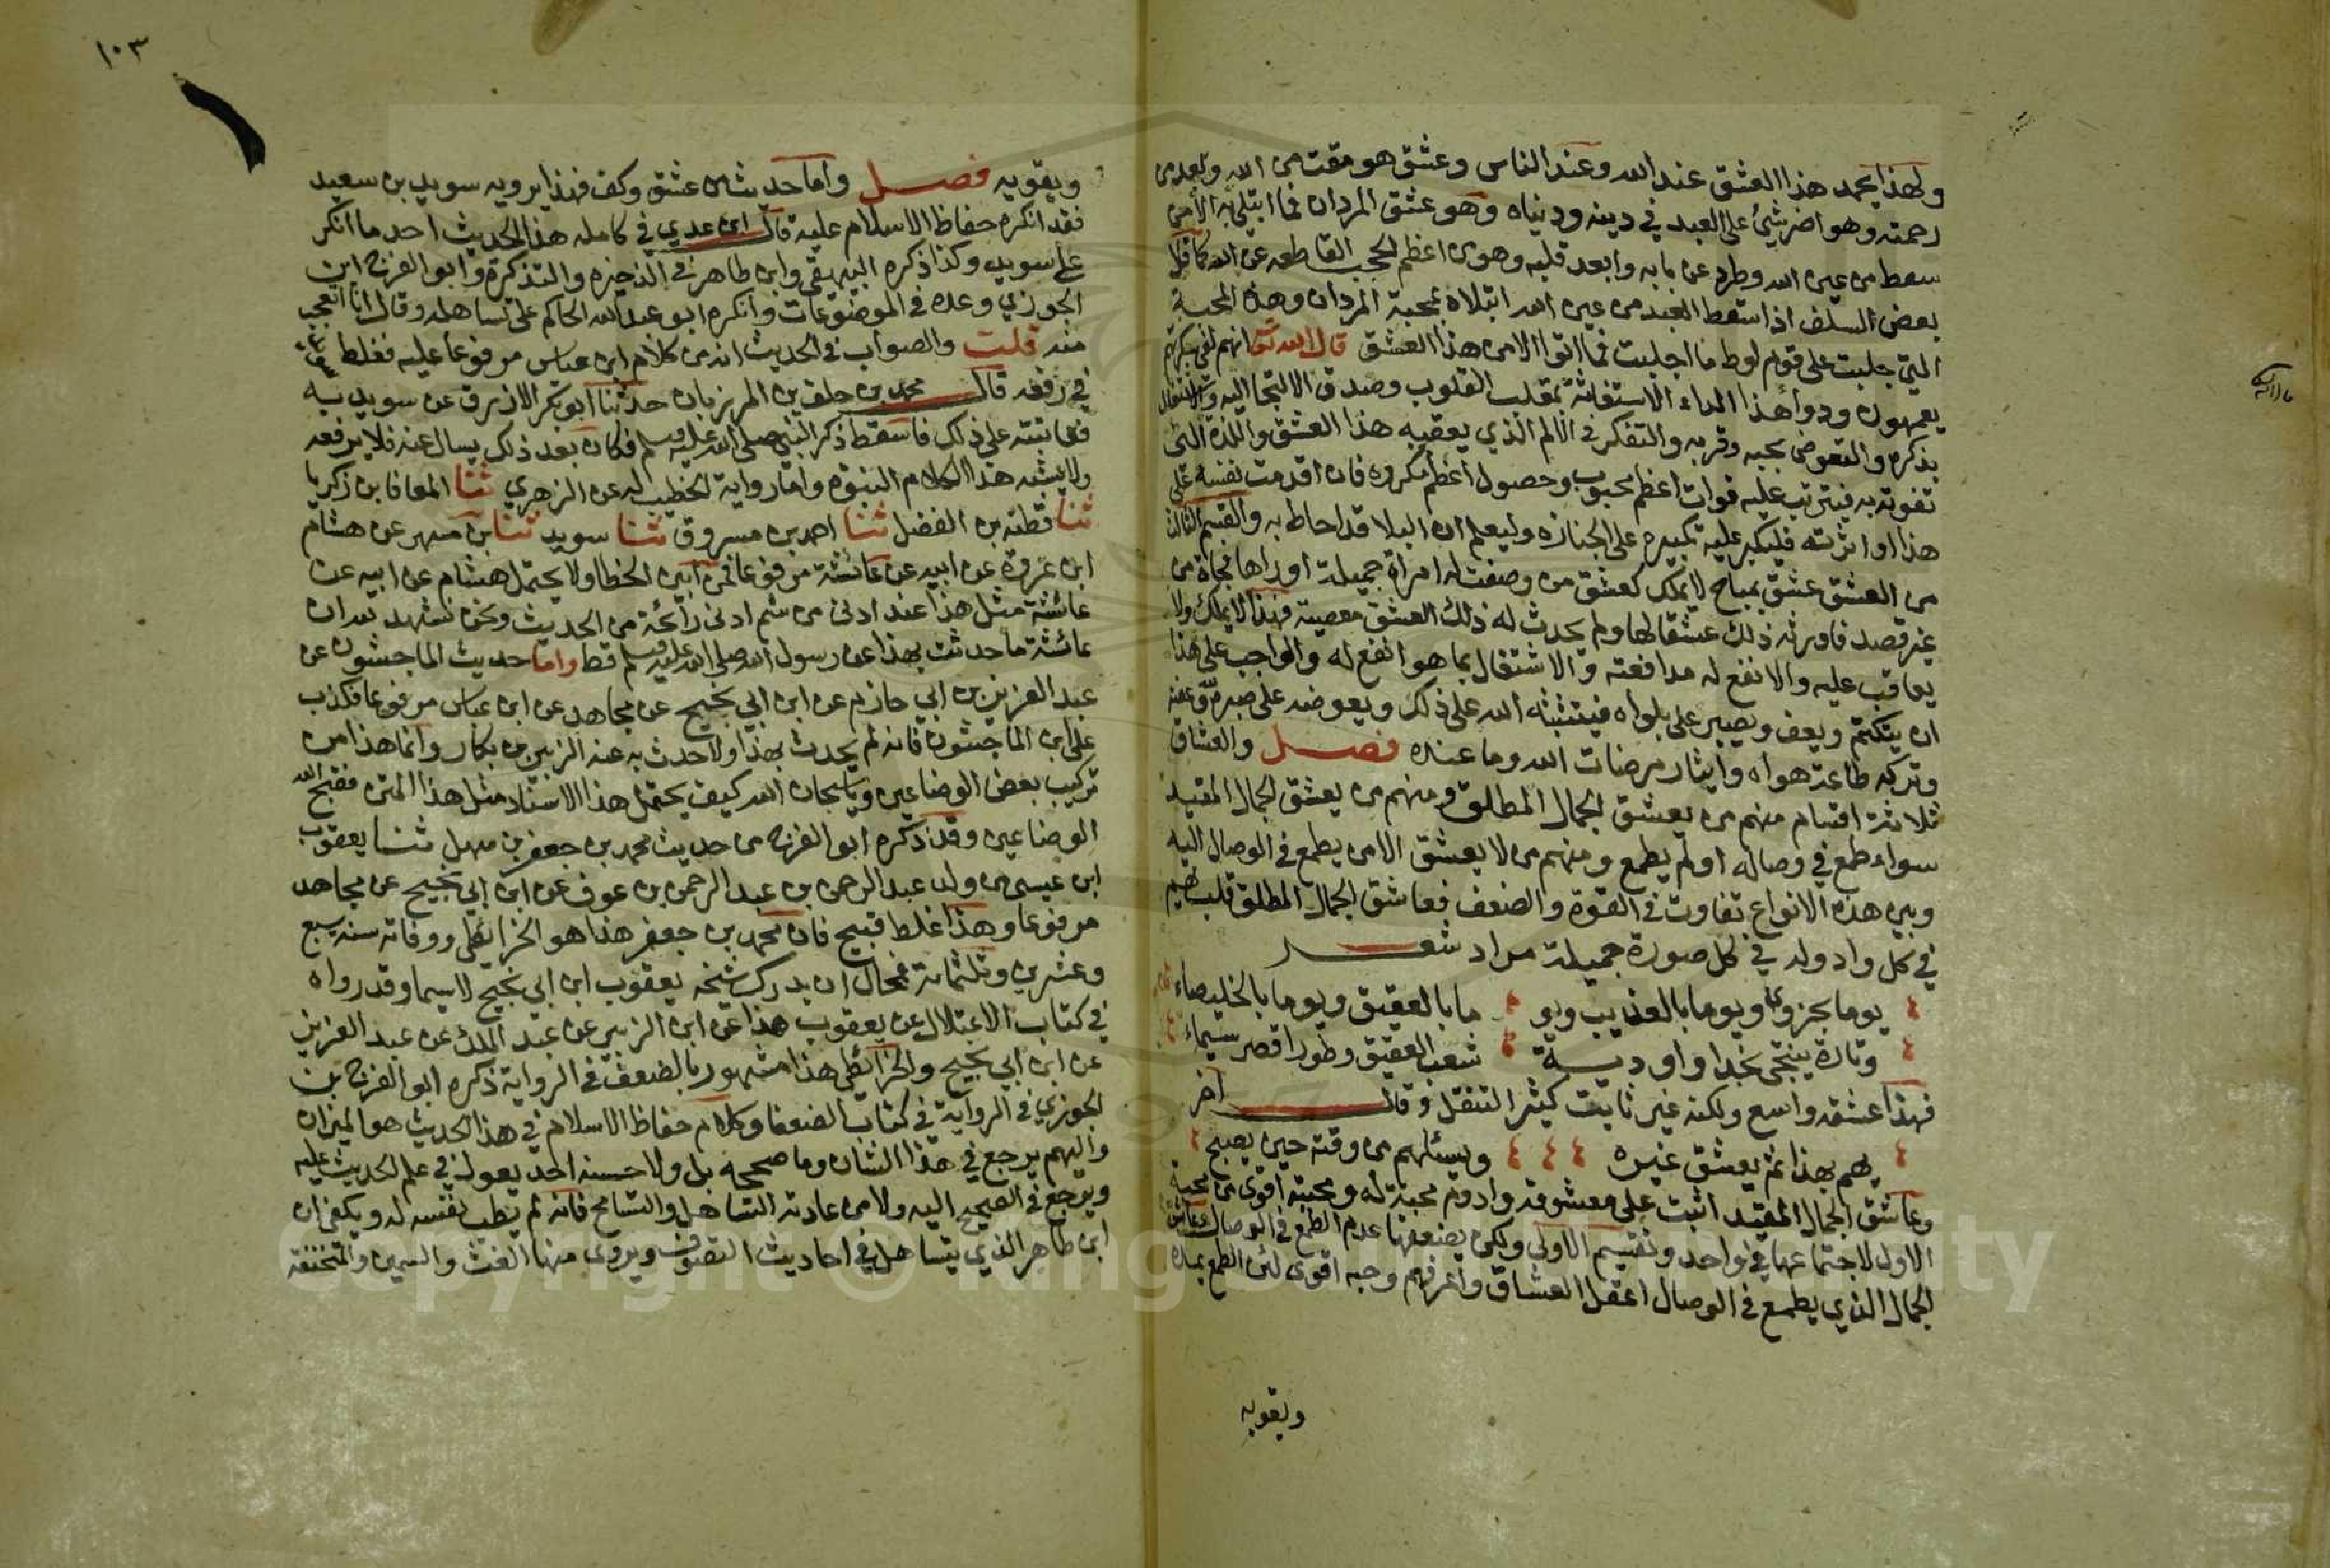 ولهذا يحمد هذا العشق عند الله وعند الناس وعشق هو مقت من الله وبعد من
رحمته وهو اضر شيئ على العبد في دينه ودنياه وهو عشق المردان فما ابتلي به الا من
سقط من عين الله وطرد عن بابه وابعد قلبه وهو من اعظم الحجب القاطعه عن الله كما قال
بعض السلف اذا سقط العبد من عين الله ابتلاه بمحبة المردان وهذه المحبة
التي جلبت على قوم لوط ما اجلبت فما اتوا الا من هذا العشق قال الله تع انهم لفي سكرتهم
يعمهون ودواء هذا الداء الاستغاثة بمقلب القلوب وصدق الالتجا اليه والاشتغال
بذكره والتعوض بحبه وقربه والتفكر في الالم الذي يعقبه هذا العشق واللذة التي
تفوته به فيترتب عليه فوات اعظم محبوب وحصول اعظم مكروه فان اقدمت نفسه على
هذا او اثرته فليكبر عليه تكبيره على الجنازه وليعلم ان البلا قد احاط به والقسم الثالث
من العشق عشق مباح لا يملك كعشق من وصفت له امراة جميلة او راها فجأة من
غير قصد فاورثه ذلك عشقا لها ولم يحدث له ذلك العشق معصية فهذا لا يملك ولا
يعاقب عليه والانفع له مدافعته والاشتغال بما هو انفع له والواجب على هذا
ان يتكتم ويعف ويصبر على بلواه فيثبته الله على ذلك ويعوضه على صبره وعفته
وتركه طاعة هواه وايثار مرضات الله وما عنده فصل والعشاق
ثلاثة اقسام منهم من يعشق الجمال المطلق ومنهم من يعشق الجمال المقيد
سواء طمع في وصاله او لم يطمع ومنهم من لا يعشق الا من يطمع في الوصال اليه
وبين هذه الانواع تفاوت في القوة والضعف فعاشق الجمال المطلق قلبه يهيم
في كل واد وله في كل صورة جميلة مراد شعر
يوما بحزوى ويوما بالعذيب ويو ما بالعقيق ويوما بالخليصاء
وتارة ينتحى نجدا واودية شعب العقيق وطورا قصر تيماء
فهذا عشقه واسع ولكنه غير ثابت كثير التنقل وقال آخر
يهم بهذا ثم يعشق غيره ويسئلهم من وقته حين يصبح
وعاشق الجمال المقيد اثبت على معشوقه وادوم محبة له ومحبته اقوى من محبة
الاول لاجتماعها في واحد وتقسيم الاولى ولكن يضعفها عدم الطمع في الوصال وعاشق
الجمال الذي يطمع في الوصال اعقل العشاق واعرفهم وحبه اقوى لئن الطمع يمده
ويقويه
١٠٣
ويقويه فصل واما حديث من عشق وكف فهذا يرويه سويد بن سعيد
فقد انكره حفاظ الاسلام عليه قال ابن عدي في كامله هذا الحديث احد ما انكر
على سويد وكذا ذكره البيهقي وابن طاهر في الذخيره والتذكرة وابو الفرج ابن
الجوزي وعده في الموضوعات وانكره ابو عبد الله الحاكم على تساهله وقال انا اتعجب
منه قلت والصواب في الحديث انه من كلام ابن عباس مرفوعا عليه فغلط
في رفعه قال محمد بن خلف بن المرزبان حدثنا ابو بكر الازرق عن سويد به
فعاتبته على ذلك فاسقط ذكر النبي صلى الله عليه وسلم فكان بعد ذلك يسال عنه فلا يرفعه
ولا يشبه هذا الكلام النبوه واما رواية الخطيب له عن الزهري ثنا المعافا بن زكريا
ثنا قطبة بن الفضل ثنا احمد بن مسروق ثنا سويد ثنا بن مسهر عن هشام
ابن عروة عن ابيه عن عائشة مرفوعا فمن ابين الخطا ولا يحتمل هشام عن ابيه عن
عائشة مثل هذا عند ادنى من شم ادنى رائحة من الحديث ونحن نشهد بعد ان
عائشة ما حدثت بهذا عن رسول الله صلى الله عليه وسلم قط واما حديث الماجشون عن
عبد العزيز بن ابي حازم عن ابن ابي نجيح عن مجاهد عن ابن عباس مرفوعا فكذب
على ابن الماجشون فانه لم يحدث بهذا ولا حدث به عنه الزبير بن بكار وانما هذا من
تركيب بعض الوضاعين وياسبحان الله كيف يحتمل هذا الاستناد مثل هذا المتن فقبح الله
الوضاعين وقد ذكره ابو الفرج من حديث محمد بن جعفر بن سهل ثنا يعقوب
ابن عيسى من ولد عبد الرحمن بن عبد الرحمن بن عوف عن ابن ابي نجيح عن مجاهد
مرفوعا وهذا غلط قبيح فان محمد بن جعفر هذا هو الخرائطي ووفاته سنة سبع
وعشرين وثلثمائة فمحال ان يدرك شيخه يعقوب ابن ابي نجيح لاسيما وقد رواه
في كتاب الاعتلال عن يعقوب هذا عن ابن الزبير عن عبد الملك عن عبد العزيز
عن ابن ابي نجيح والخرائطي هذا مشهور بالضعف في الرواية ذكره ابو الفرج بن
الجوزي في الرواية في كتاب الضعفا وكلام حفاظ الاسلام في هذا الحديث هو الميزان
واليهم يرجع في هذا الشان وما صححه بل ولا حسنه احد يعول في علم الحديث عليه
ويرجع في الصحيح اليه ولا من عادته التساهل والتسامح فانه لم يطب نفسه له ويكفي ان
ابن طاهر الذي يتساهل في احاديث التصوف ويروى منها الغث والسمين والمنخنقة
Copyright © King Saud University